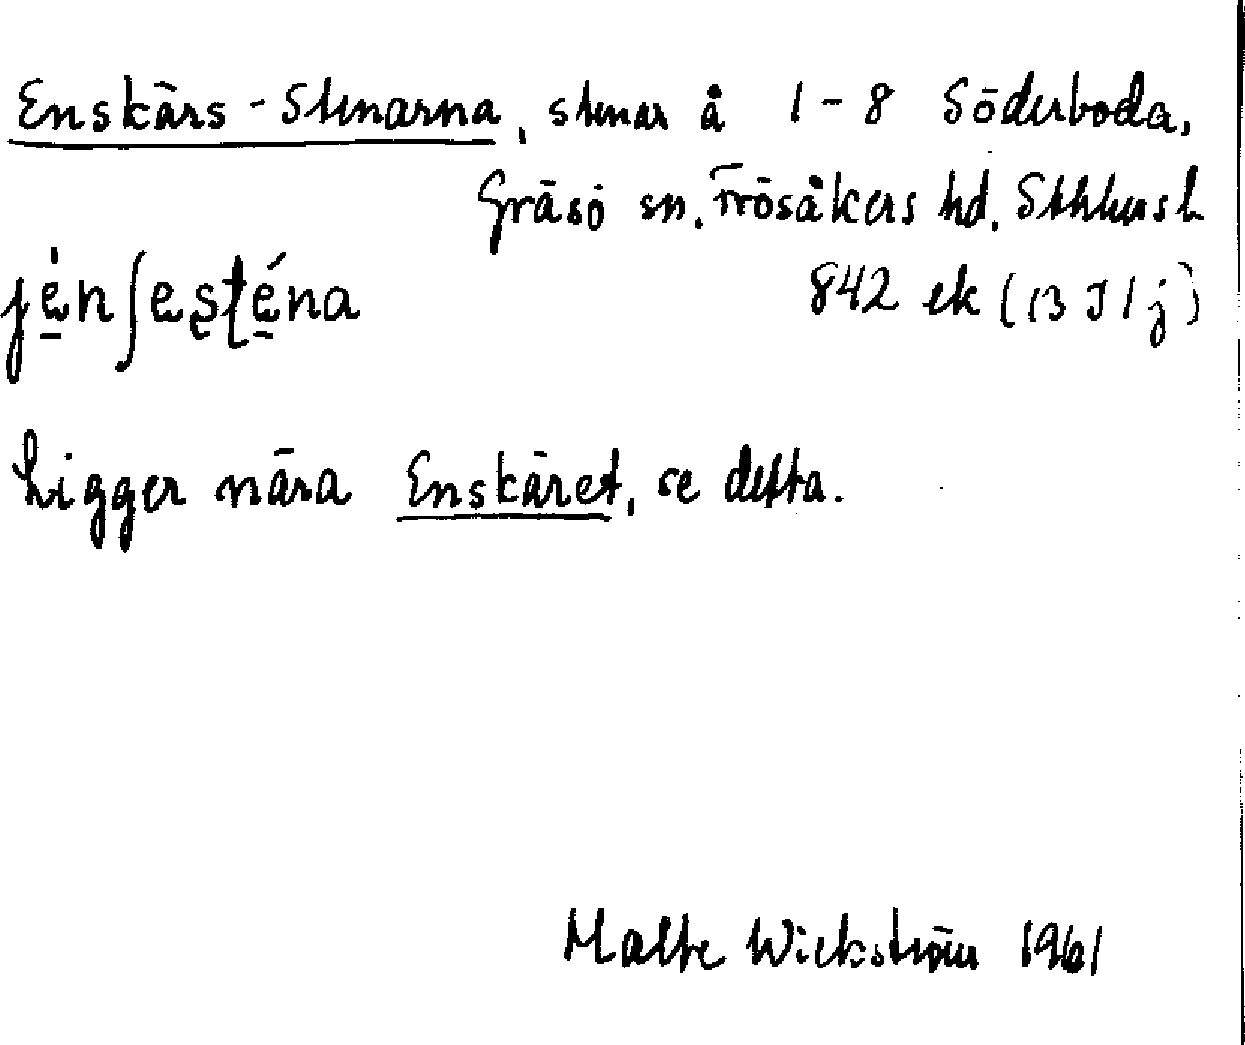 Enskärs-Stenarna, stenar å 1-8 Söderboda,
Gräsö sn. Frösåkers hd. Sthlms l
jėnʃesténa 842 ek (13 I 1 j)
Ligger nära Enskäret, se detta.
Malte Wickström 1961